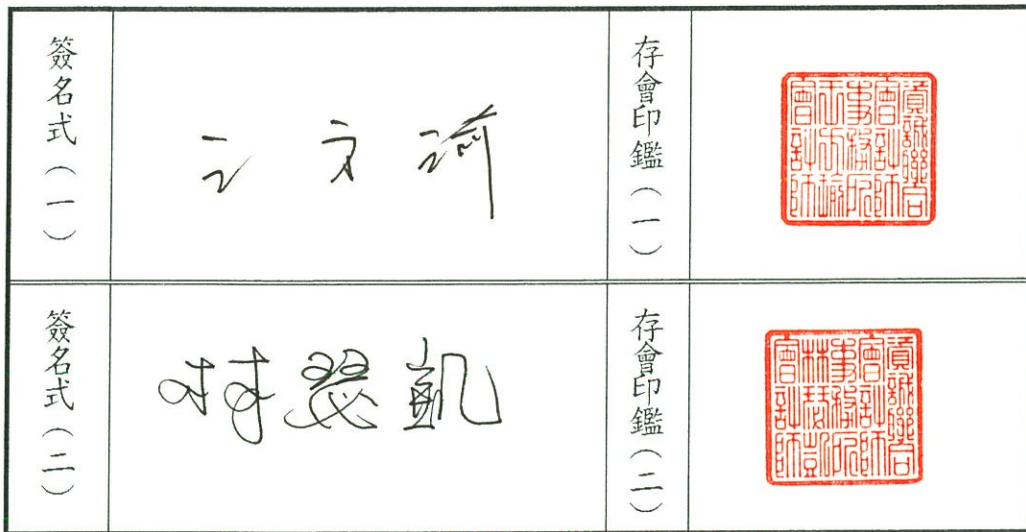 簽名式（一）
王方瑜
存會印鑑（一）
資誠聯合
會計師
事務所
王方瑜
會計師
簽名式（二）
林瑟凱
存會印鑑（二）
資誠聯合
會計師
事務所
林瑟凱
會計師